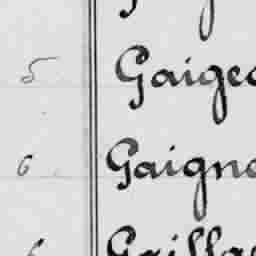 5 Gaige
6 Gaign
Gailla